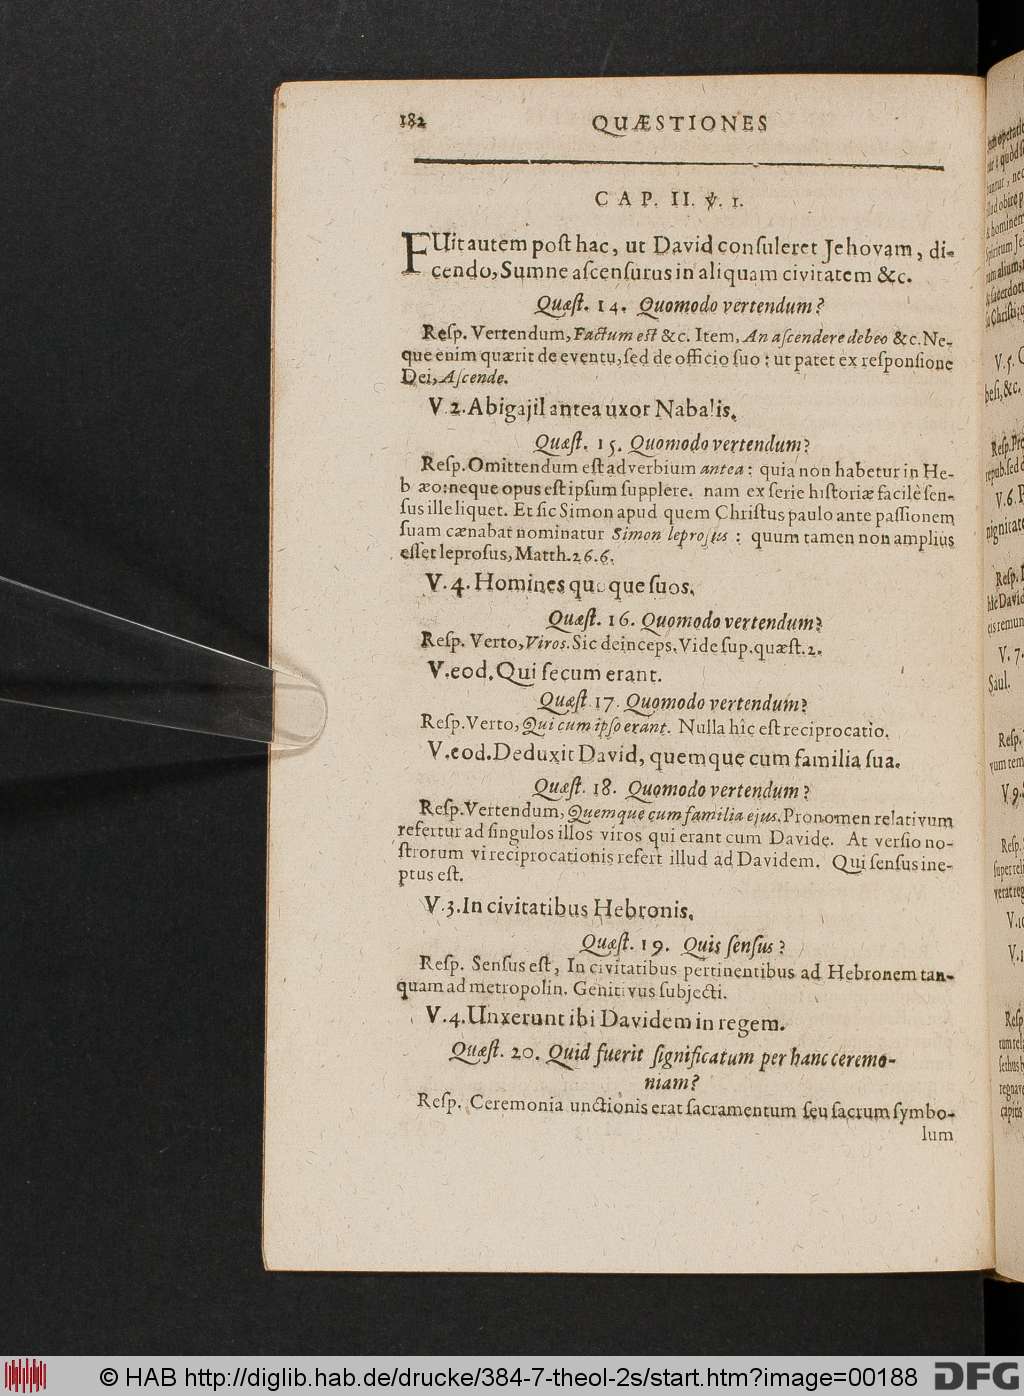 182 QUÆSTIONES
CAP. II. ℣. 1.
FUit autem post hac, ut David consuleret Jehovam, di-
cendo, Sumne ascensurus in aliquam civitatem &c.
Quæst. 14. Quomodo vertendum?
Resp. Vertendum, Factum est &c. Item, An ascendere debeo &c. Ne-
que enim quærit de eventu, sed de officio suo: ut patet ex responsione
Dei, Ascende.
V.2. Abigajil antea uxor Nabalis.
Quæst. 15. Quomodo vertendum?
Resp. Omittendum est adverbium antea: quia non habetur in He-
b æo: neque opus est ipsum supplere. nam ex serie historiæ facilè sen-
sus ille liquet. Et sic Simon apud quem Christus paulo ante passionem
suam cænabat nominatur Simon leprosus: quum tamen non amplius
esset leprosus, Matth. 26.6.
V.4. Homines quoque suos.
Quæst. 16. Quomodo vertendum?
Resp. Verto, Viros. Sic deinceps. Vide sup. quæst. 2.
V. eod. Qui secum erant.
Quæst 17. Quomodo vertendum?
Resp. Verto, Qui cum ipso erant. Nulla hîc est reciprocatio.
V. eod. Deduxit David, quemque cum familia sua.
Quæst. 18. Quomodo vertendum?
Resp. Vertendum, Quemque cum familia ejus. Pronomen relativum
refertur ad singulos illos viros qui erant cum Davide. At versio no-
strorum vi reciprocationis refert illud ad Davidem. Qui sensus ine-
ptus est.
V.3. In civitatibus Hebronis.
Quæst. 19. Quis sensus?
Resp. Sensus est, In civitatibus pertinentibus ad Hebronem tan-
quam ad metropolin. Genitivus subjecti.
V.4. Unxerunt ibi Davidem in regem.
Quæst. 20. Quid fuerit significatum per hanc ceremo-
niam?
Resp. Ceremonia unctionis erat sacramentum seu sacrum symbo-
lum
V. 5.
besi, &c.
V. 6.
V. 7.
Saul.
V. 9.
© HAB http://diglib.hab.de/drucke/384-7-theol-2s/start.htm?image=00188
DFG